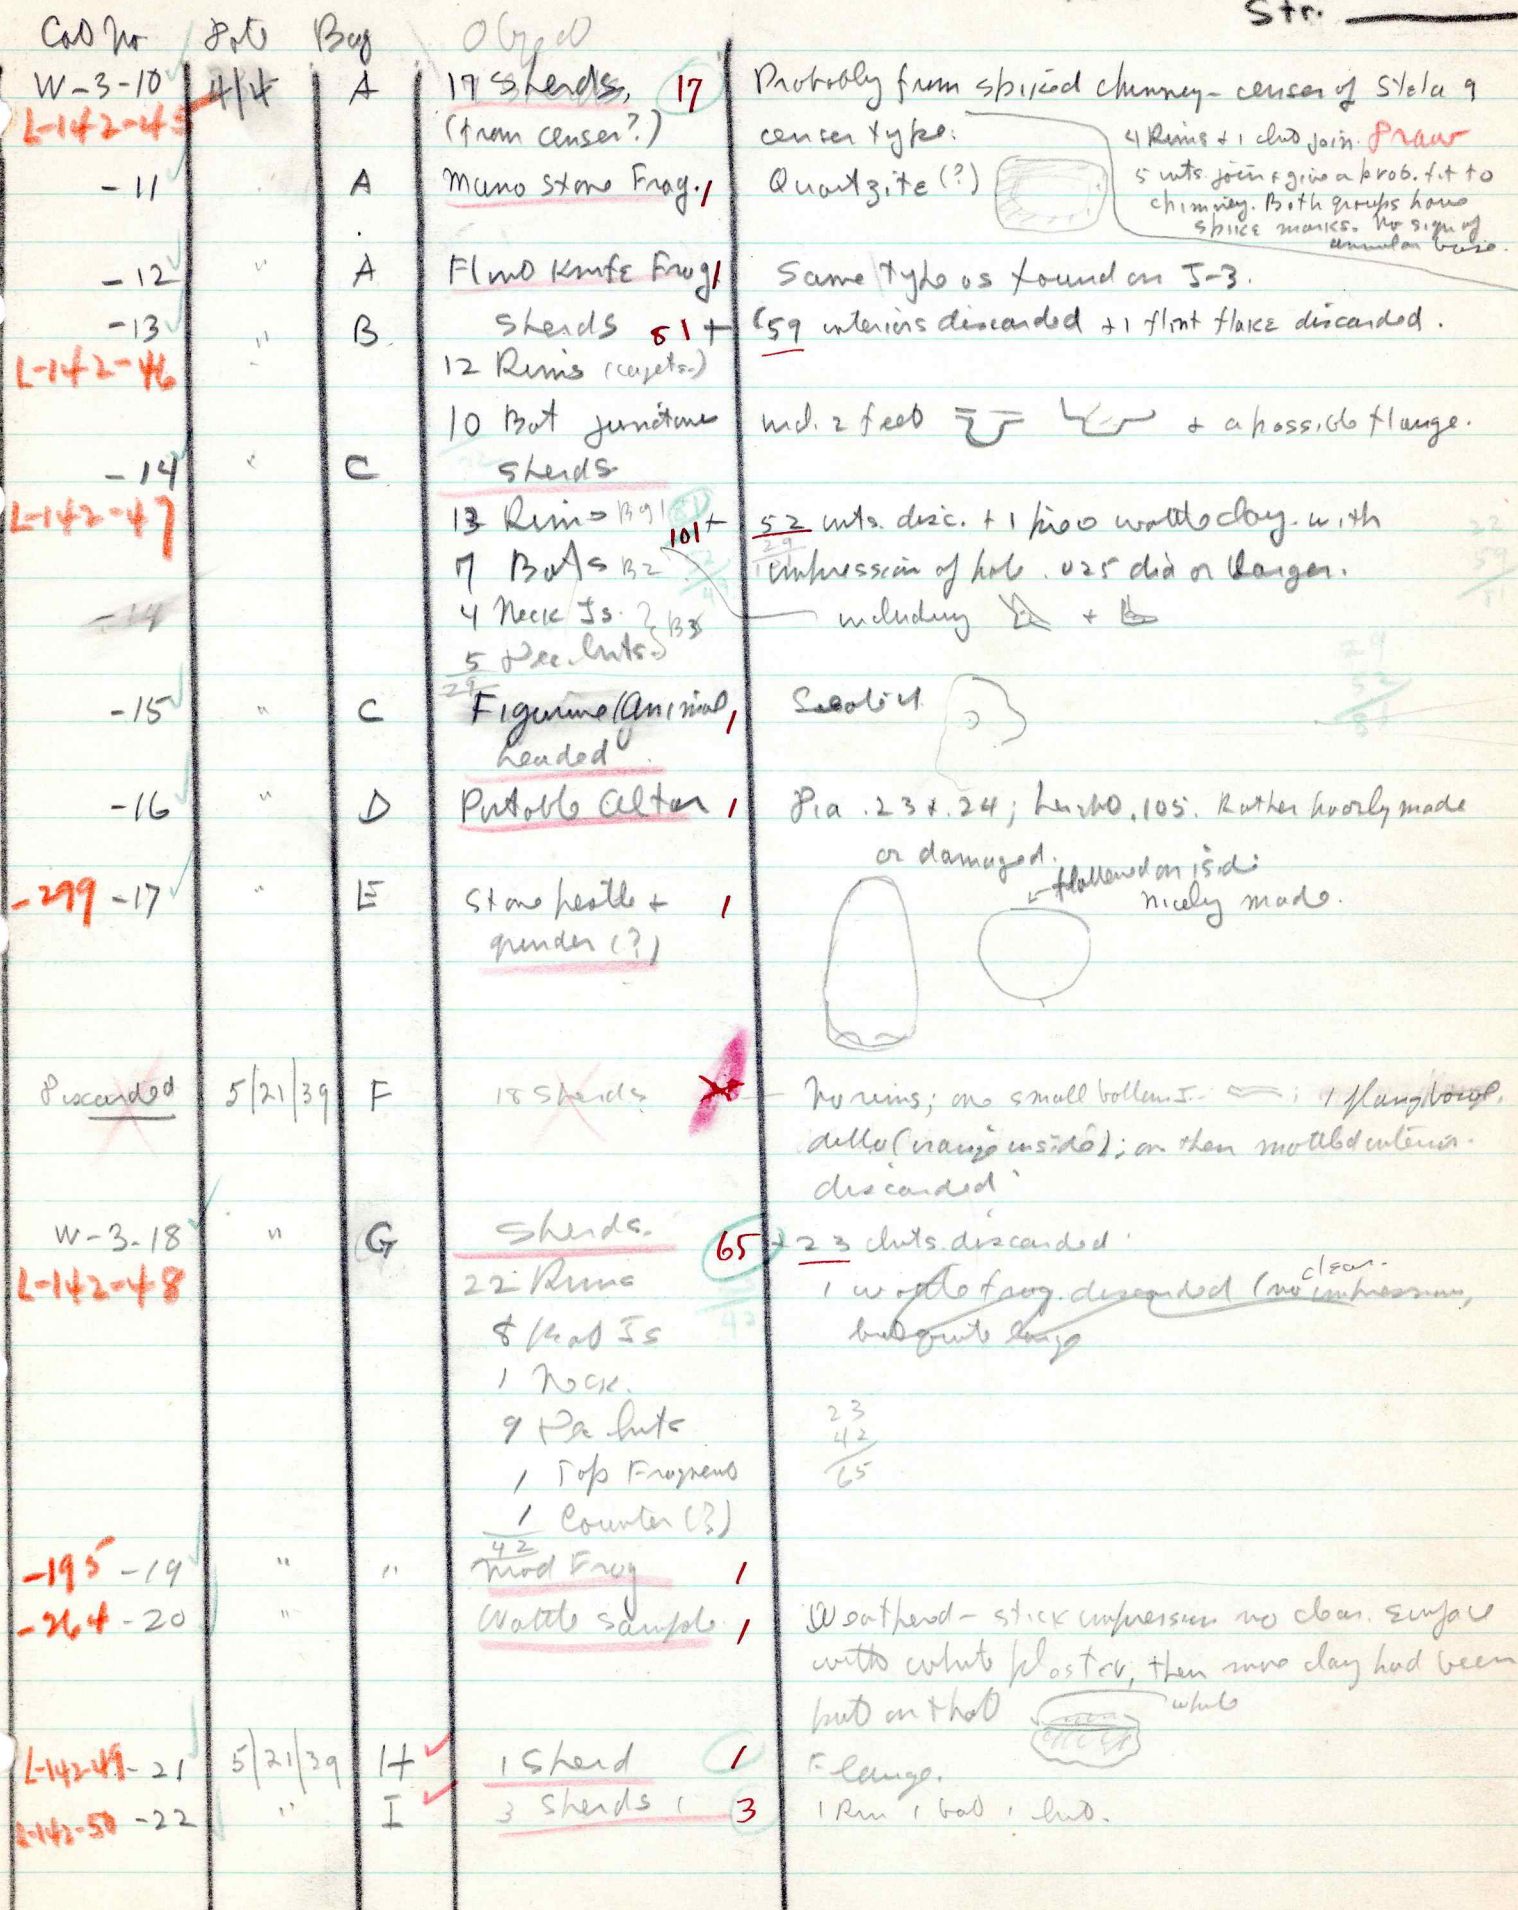 Str.
Cat No Date Bag Object
W-3-10 4/4 A 17 Sherds, 17 Probably from spiked chimney-censer of Stela 9
L-142-45 (from censer?) censer type.
4 Rims + 1 join. Draw
-11 A Mano Stone Frag. 1 Quartzite (?)
5 ints. join + give a prob. fit to
chimney. Both groups have
spike marks. No sign of
annular base.
-12 " A Flint Knife Frag 1 Same type as found on J-3.
-13 " B Sherds 81 + 59 interiors discarded + 1 flint flake discarded.
L-142-46 " 12 Rims
10 Bot junctions incl. 2 feet + a possible flange.
-14 " C Sherds
L-142-47 13 Rims B91 101 + 52 ints. disc. + 1 piece wattle clay with
7 Bots B2 impression of pole .025 dia or larger.
-14 4 Neck Js. B3 including +
5
29
-15 " C Figurine (Animal 1
headed
-16 " D Portable Altar 1 Dia .23 x .24; height .105. Rather poorly made
or damaged.
-299 -17 " E Stone pestle + 1 flattened on 1 side
grinder (?) nicely made.
Discarded 5/21/39 F 18 Sherds No rims; one small bottom J. ; 1 flang
(orange inside); mottled interior.
discarded
W-3-18 " G Sherds. 65 + 23 discarded
L-142-48 22 Rims 1 wattle frag. discarded (no clear impression,
8 Bot Js but quite large
1 Neck.
9 23
42
1 Top Fragment 65
1 Counter (?)
42
-195 -19 " " Frag 1
-264 -20 " Wattle sample 1 Weathered - stick impression no clear. Surface
with white plaster, then more clay had been
put on that white
L-142-49 -21 5/21/39 H 1 Sherd 1 Flange.
L-142-50 -22 " I 3 Sherds 3 1 Rim 1 bot 1